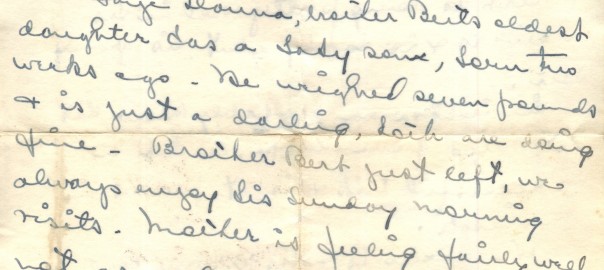 Donna, brother Berts oldest
daughter has a baby son, born two
weeks ago - He weighed seven pounds
+ is just a darling, both are doing
fine - Brother Bert just left, we
always enjoy his Sunday morning
visits. Mother is feeling fairly well
not